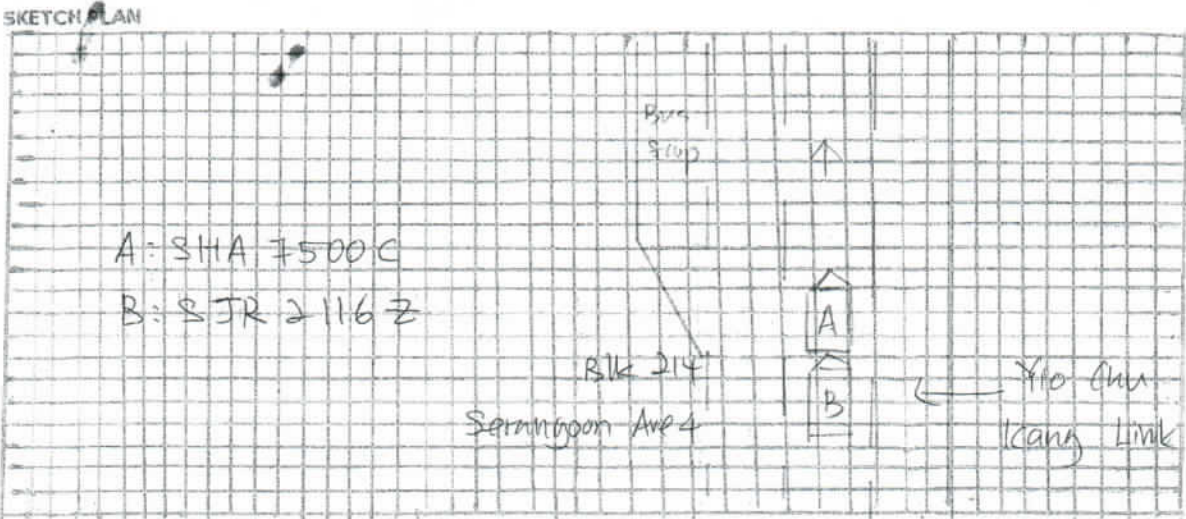 SKETCH PLAN
Bus
Stop
A: SHA 7500C
B: SJR 2116 Z
A
Blk 214
Serangoon Ave 4
B
Yio Chu
Kang Link